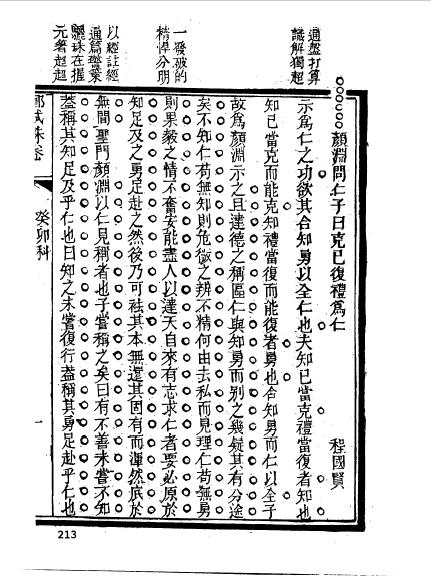 通盤打算
識解獨超
一發破的
精悍分明
以經註經
通篇盤業
驪珠在握
元箸超超
顏淵問仁子曰克己復禮為仁
程國賢
示為仁之功欲其合知勇以全仁也夫知己當克禮當復者知也
知己當克而能克知禮當復而能復者勇也合知勇而仁以全子
故為顏淵示之且達德之稱區仁與知勇而別之幾疑其有分途
矣不知仁苟無知則危微之辨不精何由去私而見理仁苟無勇
則果毅之情不奮安能盡人以達天自來有志求仁者要必原於
知足及之勇足赴之然後乃可祛其本無還其固有而渾然底於
無間聖門顏淵以仁見稱者也子嘗稱之矣曰有不善未嘗不知
蓋稱其知足及乎仁也曰知之未嘗復行蓋稱其勇足赴乎仁也
癸卯科
一
213